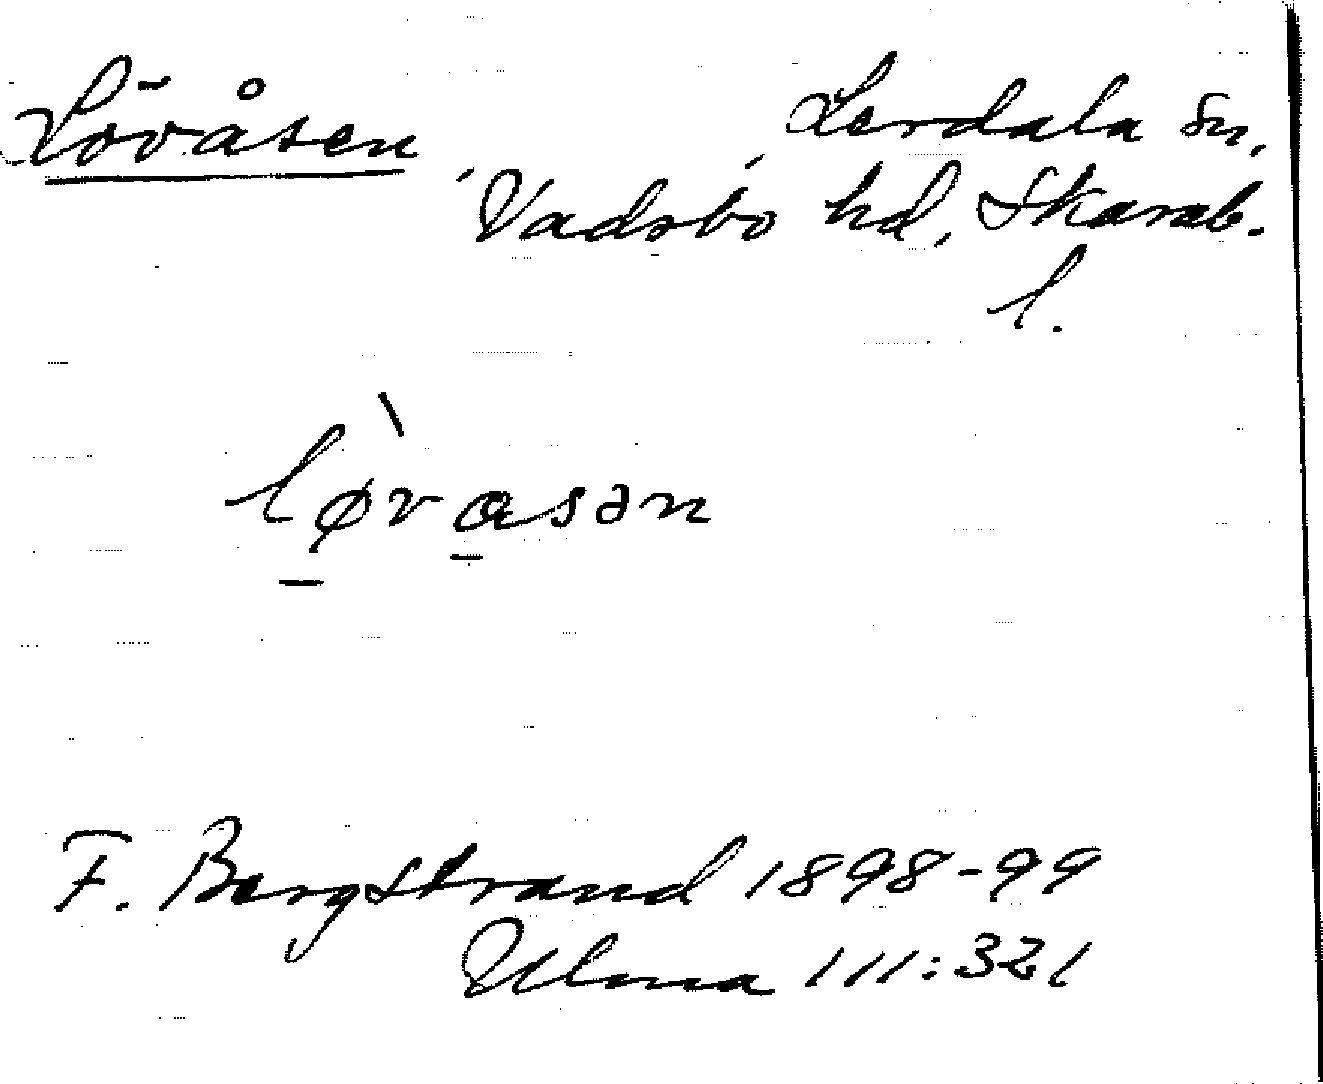 Lövåsen
Lerdala sn,
Vadsbo hd, Skarab.
l.
l̀øvasən
F. Bergstrand 1898-99
Ulma 111:321